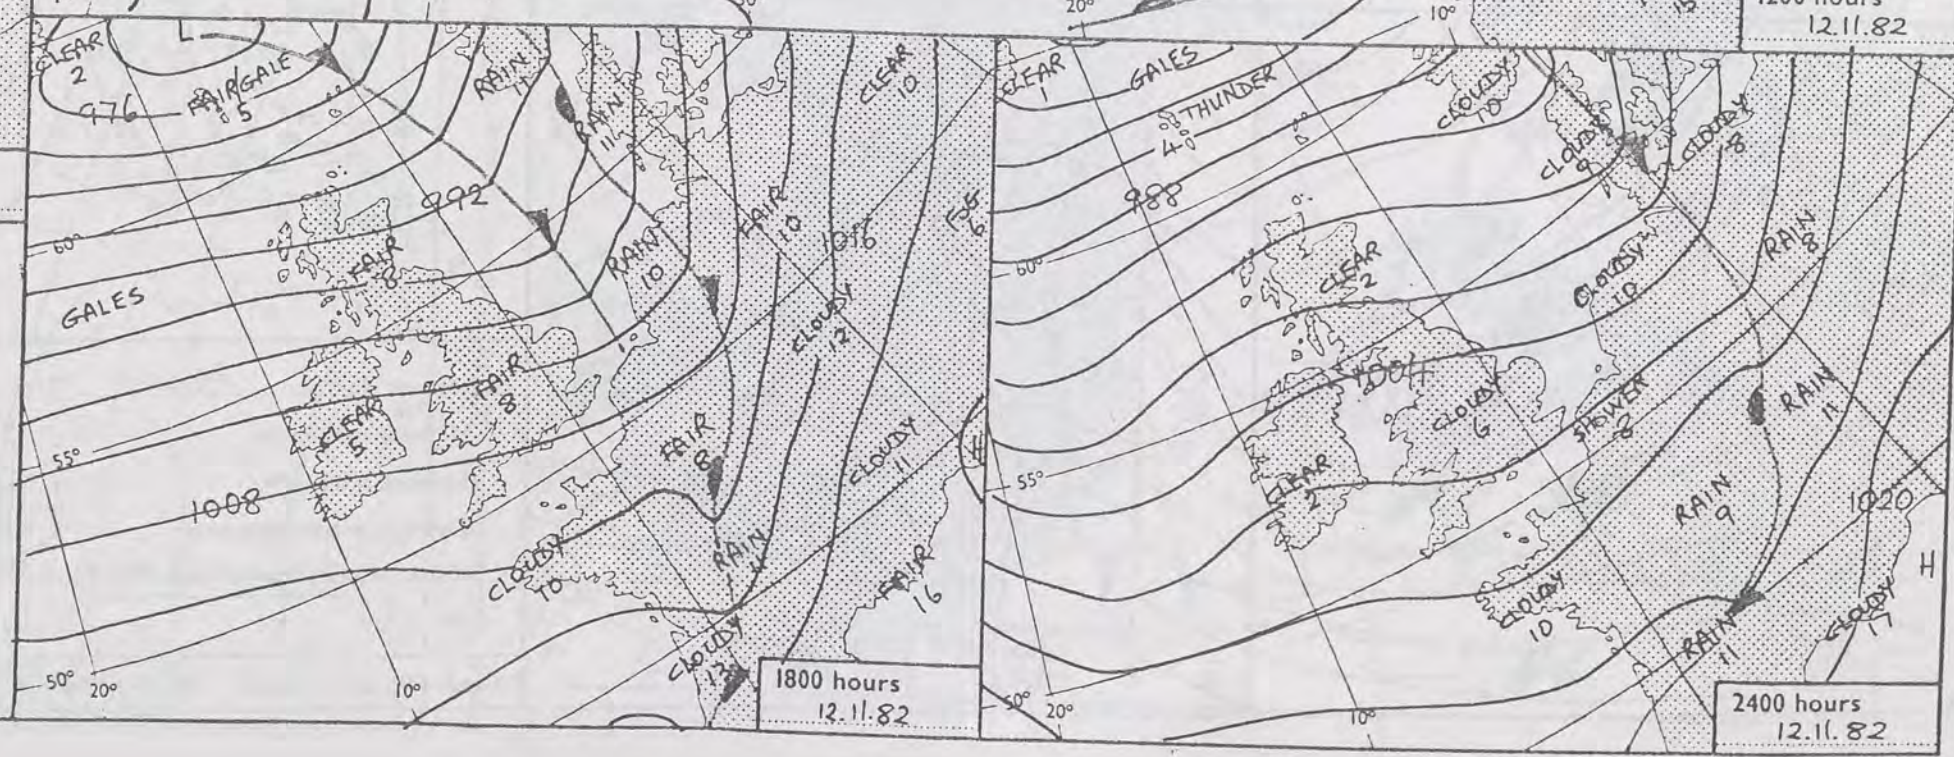 20°
10°
1200 hours
12.11.82
CLEAR
2
L
FAIR/GALE
5
976
RAIN
11
RAIN
11
CLEAR
10
992
60°
FAIR
8
GALES
RAIN
10
FAIR
10
1016
FOG
6
CLOUDY
12
FAIR
8
CLEAR
5
55°
FAIR
8
CLOUDY
11
H
1008
CLOUDY
10
RAIN
11
FAIR
16
CLOUDY
13
50°
20°
10°
1800 hours
12.11.82
CLEAR
1
GALES
THUNDER
4
CLOUDY
10
CLOUDY
9
CLOUDY
8
988
60°
CLEAR
2
CLOUDY
10
RAIN
8
1004
CLOUDY
6
SHOWER
8
RAIN
11
CLEAR
2
55°
RAIN
9
1020
H
CLOUDY
10
RAIN
11
CLOUDY
17
50°
20°
10°
2400 hours
12.11.82